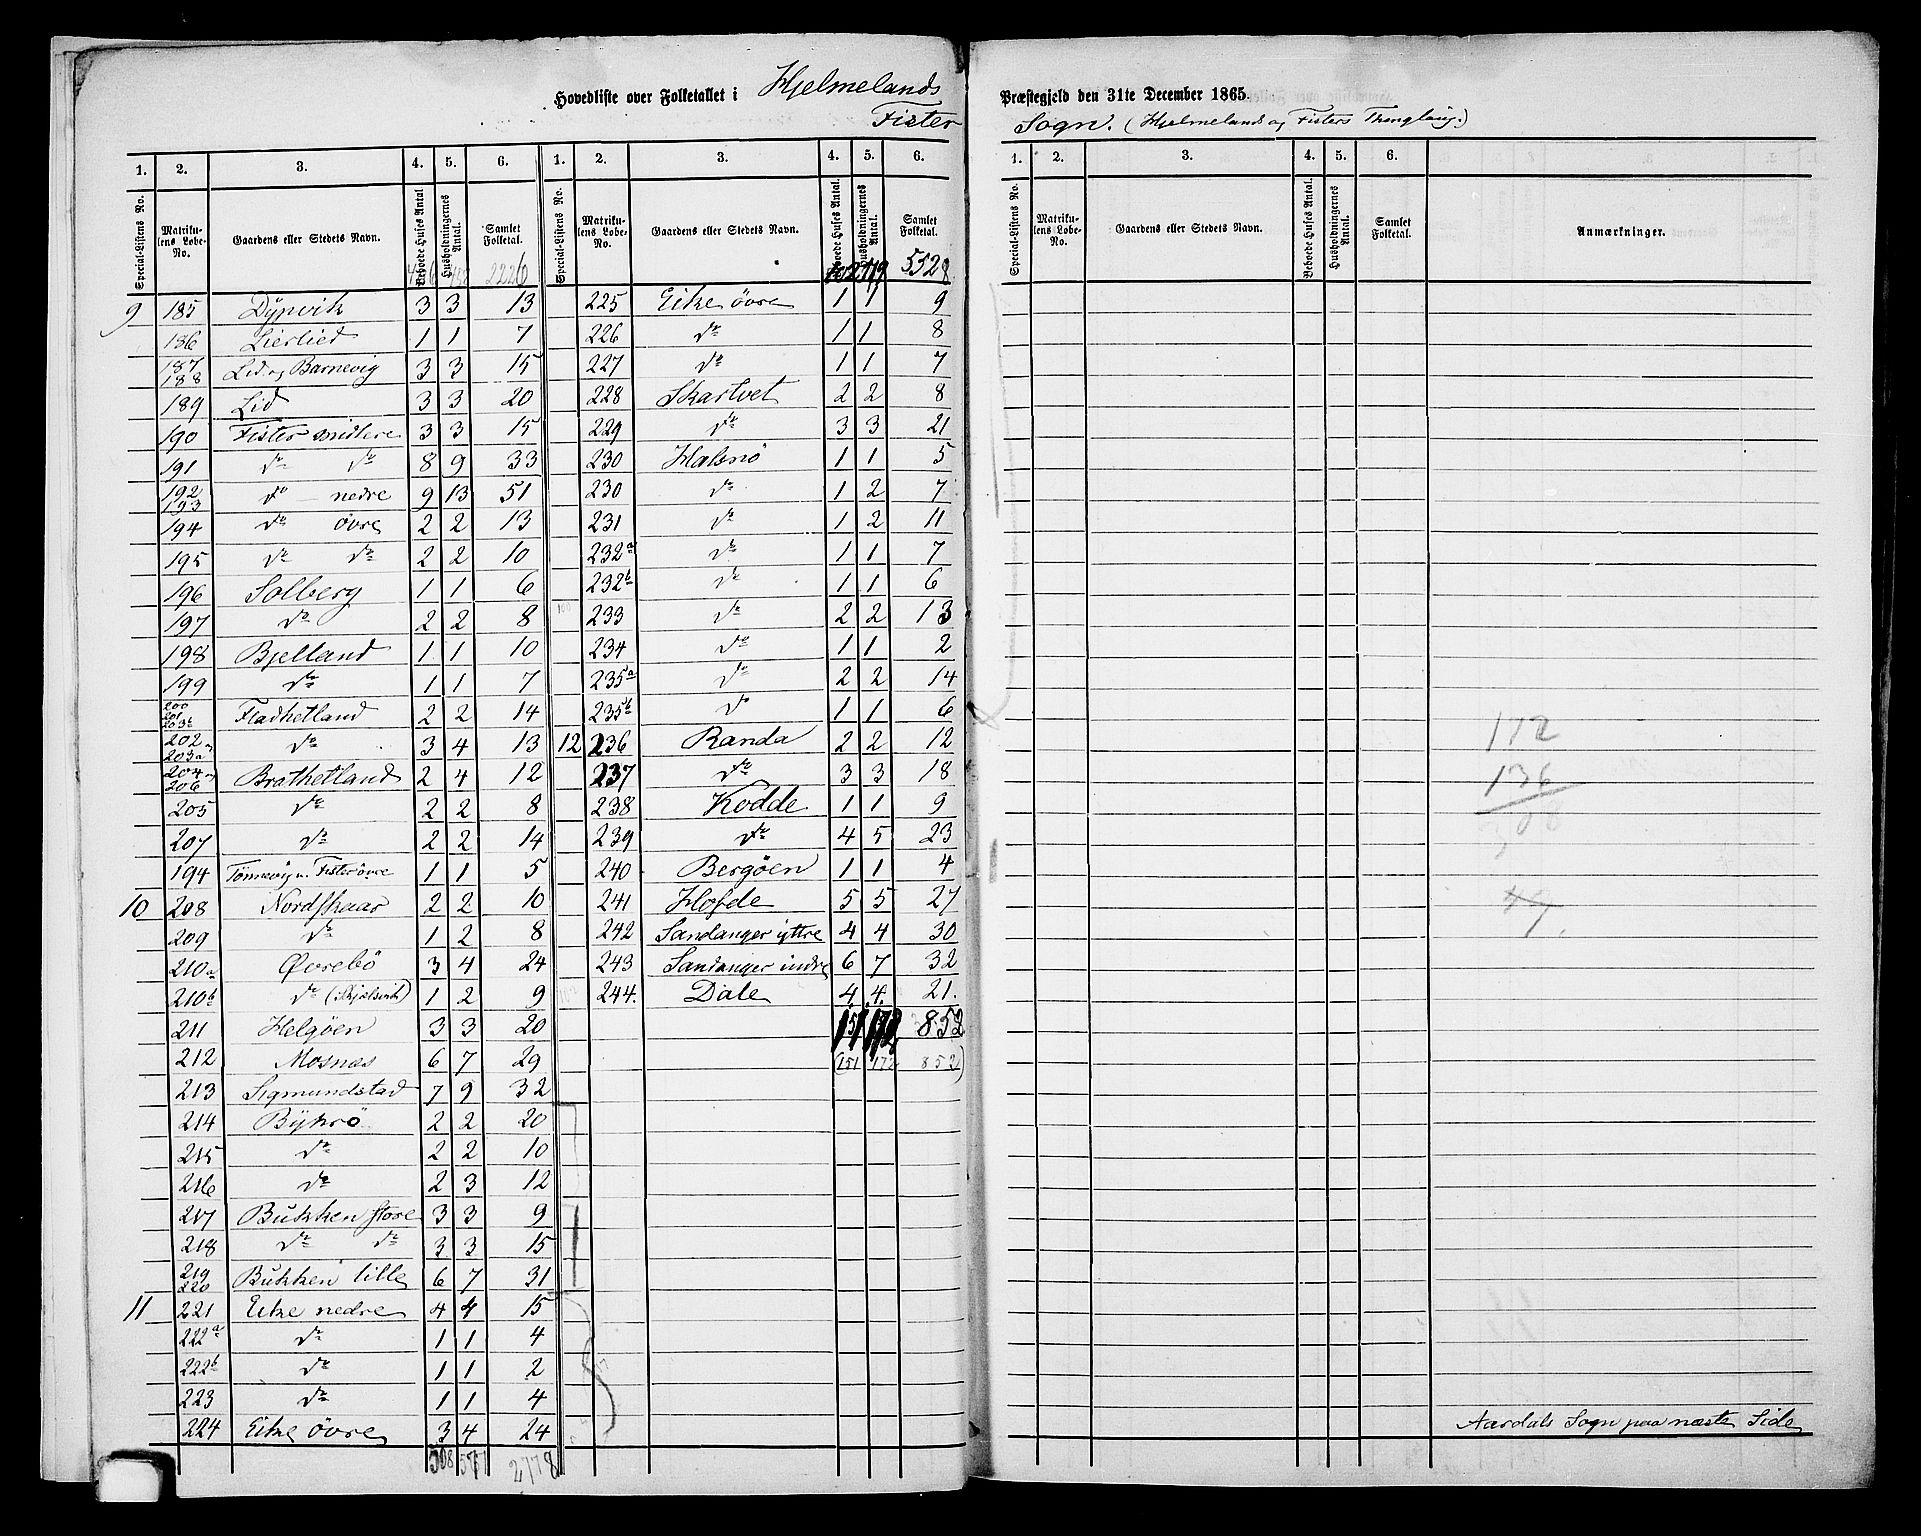 Hovedliste over Folketallet i Hjelmelands Præstegjeld den 31te December 1865.
Fister Sogn. (Hjelmelands og Fisters Thinglaug.)
1. 2. 3. 4. 5. 6. 1. 2. 3. 4. 5. 6.
Special-Listens No. Matrikulens Løbe-No. Gaardens eller Stedets Navn. Beboede Huses Antal Husholdningernes Antal. Samlet Folketal. Special-Listens No. Matrikulens Løbe-No. Gaardens eller Stedets Navn. Beboede Huses Antal. Husholdningernes Antal. Samlet Folketal.
2226
5528
9 185 Dypvik 3 3 13
186 Lierlied 1 1 7
187 188 Lid og Barnevig 3 3 15
189 Lid 3 3 20
190 Fister midlere 3 3 15
191 do do 8 9 33
192 193 do nedre 9 13 51
194 do övre 2 2 13
195 do do 2 2 10
196 Solberg 1 1 6
197 do 2 2 8
198 Bjelland 1 1 10
199 do 1 1 7
200 201 203b Fladhetland 2 2 14
202 og 203a do 3 4 13
204 og 206 Brathetland 2 4 12
205 do 2 2 8
207 do 2 2 14
194 Tönnevig u. Fister övre 1 1 5
10 208 Nordskaar 2 2 10
209 do 1 2 8
210a Øvrebö 3 4 24
210b do (i Skjælsvik) 1 2 9
211 Helgöen 3 3 20
212 Mosnæs 6 7 29
213 Sigmundstad 7 9 32
214 Byhrö 2 2 20
215 do 2 2 10
216 do 2 3 12
217 Bukken store 3 3 9
218 do do 3 3 15
219 220 Bukken lille 6 7 31
11 221 Eike nedre 4 4 15
222a do 1 1 4
222b do 1 1 2
223 do 1 1 4
224 Eike övre 3 4 24
2778
225 Eike övre 1 1 9
226 do 1 1 8
227 do 1 1 7
228 Skartvet 2 2 8
229 do 3 3 21
230 Halsnö 1 1 5
230 do 1 2 7
231 do 1 2 11
232a do 1 1 7
232b do 1 1 6
233 do 2 2 13
234 do 1 1 2
235a do 2 2 14
235b do 1 1 6
12 236 Randa 2 2 12
237 do 3 3 18
238 Kodde 1 1 9
239 do 4 5 23
240 Bergöen 1 1 4
241 Hofde 5 5 27
242 Sandanger yttre 4 4 30
243 Sandanger indre 6 7 32
244. Dale 4 4. 21.
151 172 852
(151 172 852)
1. 2. 3. 4. 5. 6.
Special-Listens No. Matrikulens Løbe-No. Gaardens eller Stedets Navn. Beboede Huses Antal. Husholdningernes Antal. Samlet Folketal. Anmærkninger.
172
136
308
Aardals Sogn paa næste Side